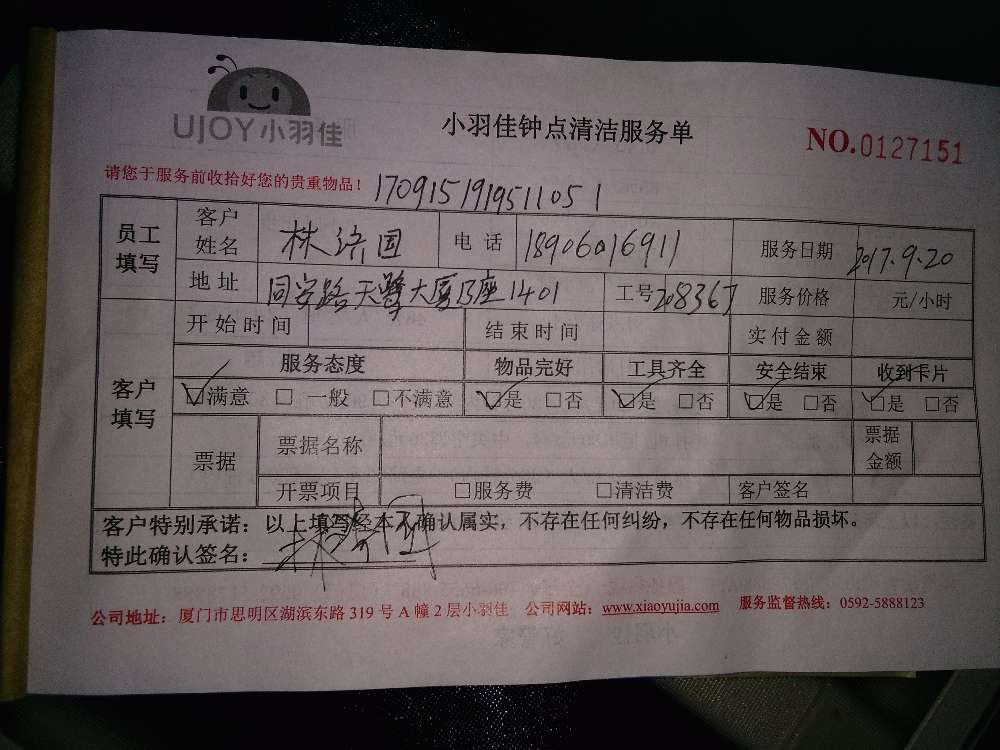 UJOY小羽佳
小羽佳钟点清洁服务单
NO.0127151
请您于服务前收拾好您的贵重物品！ 1709151919511051
员工填写 客户姓名 林济国 电话 18906016911 服务日期 2017.9.20
地址 同安路天鹭大厦B座1401 工号 208367 服务价格 元/小时
客户填写 开始时间 结束时间 实付金额
服务态度 物品完好 工具齐全 安全结束 收到卡片
☑满意 □一般 □不满意 ☑是 □否 ☑是 □否 ☑是 □否 ☑是 □否
票据 票据名称 票据金额
开票项目 □服务费 □清洁费 客户签名
客户特别承诺：以上填写经本人确认属实，不存在任何纠纷，不存在任何物品损坏。
特此确认签名：
公司地址：厦门市思明区湖滨东路319号A幢2层小羽佳 公司网站：www.xiaoyujia.com 服务监督热线：0592-5888123